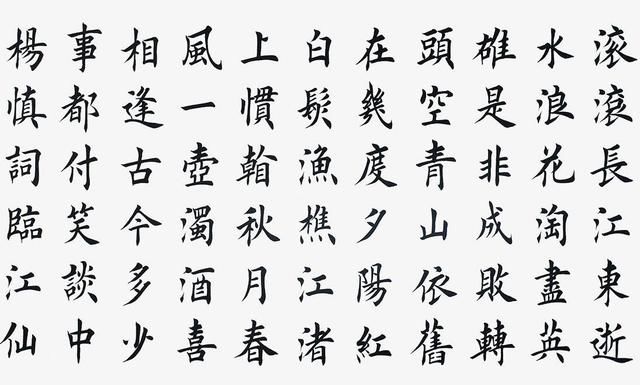 滚滾長江東逝
水浪花淘盡英
雄是非成敗轉
頭空青山依舊
在幾度夕陽紅
白髮漁樵江渚
上慣看秋月春
風一壺濁酒喜
相逢古今多少
事都付笑談中
楊慎詞臨江仙